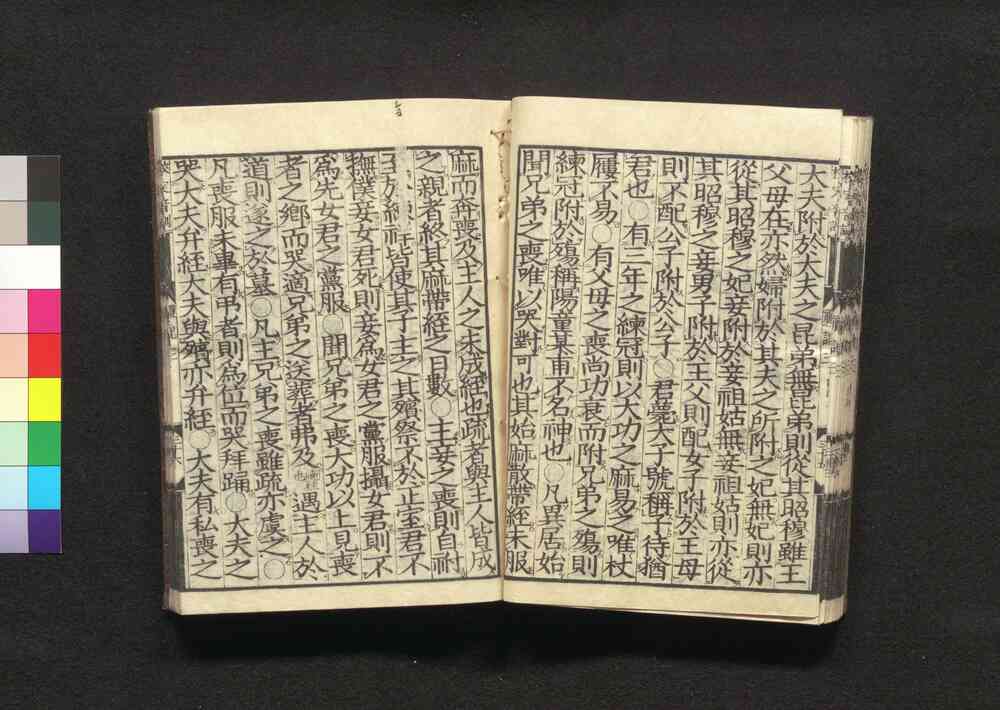 大夫附於大夫之昆弟無昆弟則從其昭穆雖王
父母在亦然婦附於其夫之所附之妃無妃則亦
從其昭穆之妃妾附於妾祖姑無妾祖姑則亦從
其昭穆之妾男子附於王父則配女子附於王母
則不配公子附於公子○君薨大子號稱子待猶
君也○有三年之練冠則以大功之麻易之唯杖
屨不易○有父母之喪尚功衰而附兄弟之殤則
練冠附於殤稱陽童某甫不名神也○凡異居始
聞兄弟之喪唯以哭對可也其始麻散帶絰未服
麻而奔喪及主人之未成絰也疏者與主人皆成
之親者終其麻帶絰之日數○主妾之喪則自祔
至於練祥皆使其子主之其殯祭不於正室君不
撫僕妾女君死則妾為女君之黨服攝女君則不
為先女君之黨服○聞兄弟之喪大功以上見喪
者之鄉而哭適兄弟之送葬者弗及遇主人於
道則遂之於墓○凡主兄弟之喪雖疏亦虞之○
凡喪服未畢有弔者則為位而哭拜踊○大夫之
哭大夫弁絰大夫與殯亦弁絰○大夫有私喪之